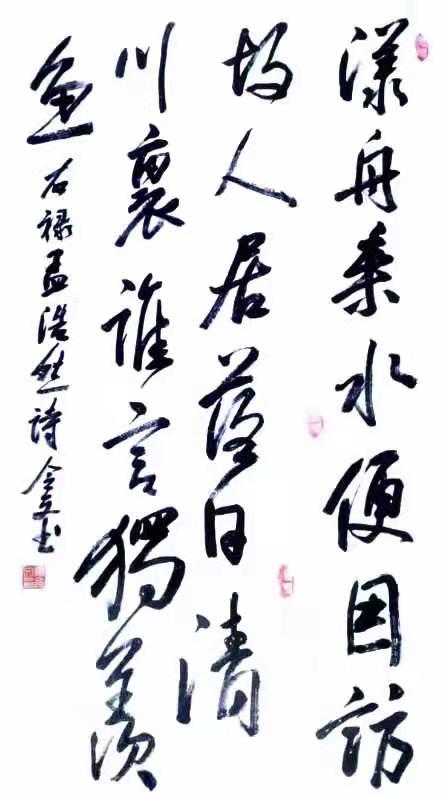 漾舟乘水便因訪
故人居落日清
川裏誰言獨羨
魚 右禄孟浩然詩 书